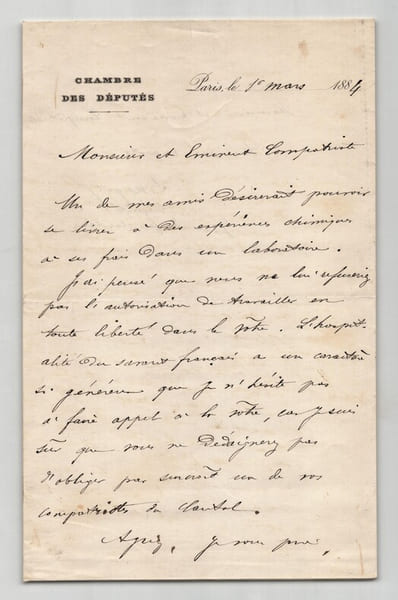 CHAMBRE
DES DÉPUTÉS
Paris, le 1er mars 1884
Monsieur et Eminent Compatriote
Un de mes amis désirerait pouvoir
se livrer à des expériences chimiques
à ses frais dans un laboratoire.
J'ai pensé que vous ne lui refuseriez
pas l'autorisation de travailler en
toute liberté dans le vôtre. L'hospit-
alité du savant français a un caractère
si généreux que je n'hésite pas
à faire appel à la vôtre, car je suis
sûr que vous ne dédaignerez pas
d'obliger par surcroît un de vos
compatriotes du Cantal.
Agréez, je vous prie,